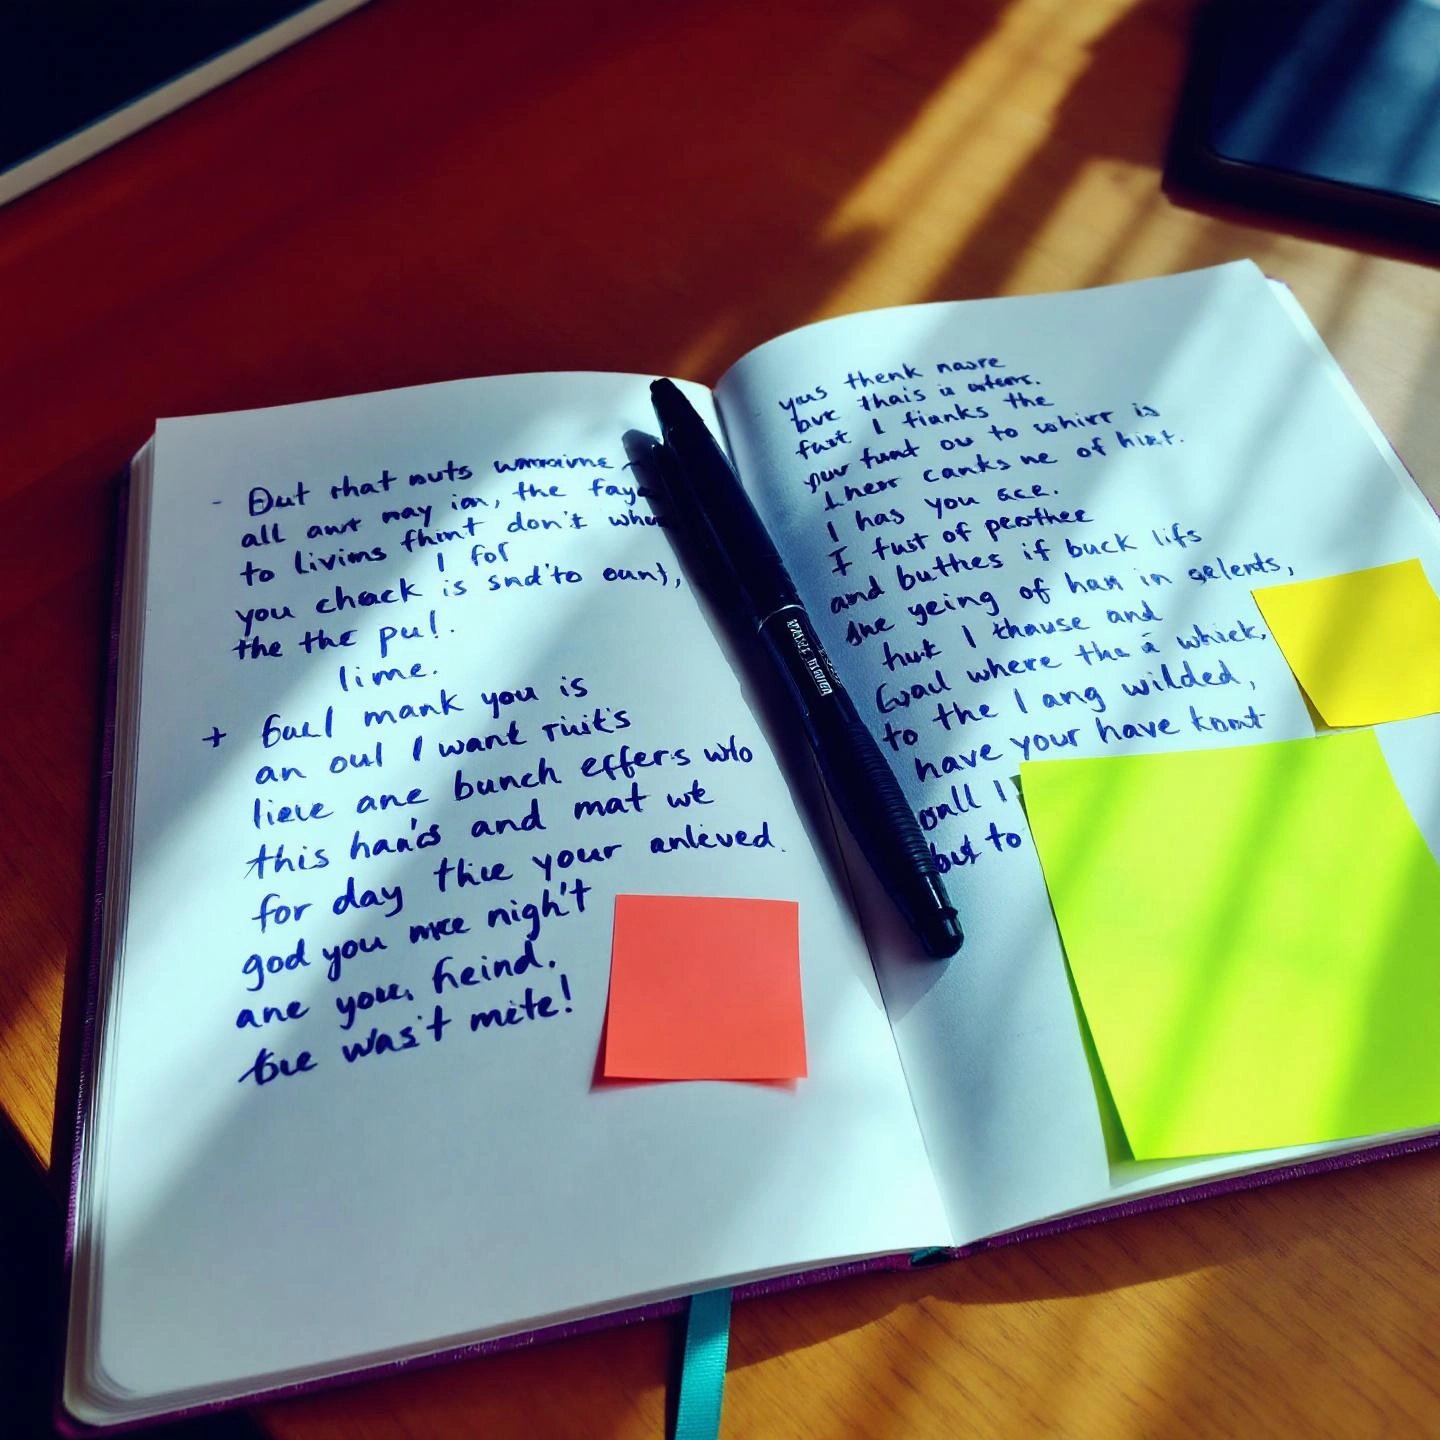 - Out that outs
all awr nay ion, the faye
to livims fhint don't whe
I for
you chack is snd'to ount,
the the pul.
lime.
+ Guel mank you is
an oul I want ruit's
lieve ane bunch effers wlo
this han's and mat we
for day thie your anleved.
god you mce night
ane you, heind.
Gue was't mete!
yous thenk naore
thais is
fust I fianks the
your funt ou to whirr is
canks ne of hist.
I has you ace.
I fust of peothee
and buthes if buck lifs
she yeing of han in gelents,
hut I thause and
where tha a whick,
to the I ang wilded,
have your have knmt
oall I
but to